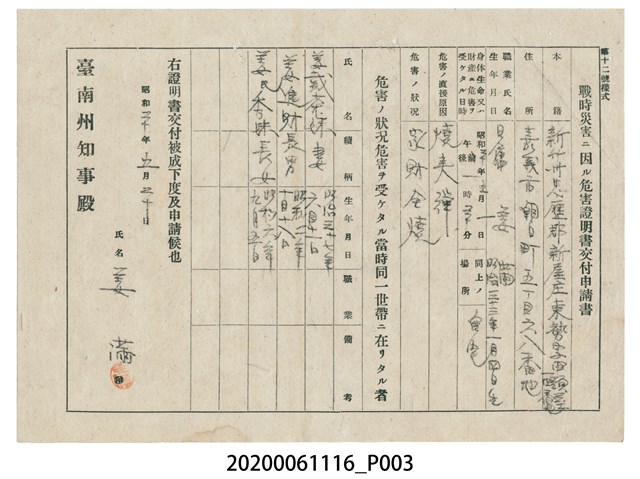 第十二號樣式
戰時災害ニ因ル危害證明書交付申請書
本籍 新竹州中壢郡新屋庄東勢
住所 嘉義市朝日町五丁目六八番地
職業氏名 姜滿
生年月日 明治三十三年一月四日生
身体生命又ハ財産ニ危害ヲ受ケタル日時 昭和 日 午前後 時 分
同上ノ場所 自宅
危害ノ直接原因 燒夷彈
危害ノ狀況 家財全燒
危害ノ狀況危害ヲ受ケタル當時同一世帶ニ在リタル者
氏名 續柄 生年月日 職業 備考
姜戴 妹 妻 明治三十七年六月
姜 財 長男 昭和 年十月十八日
姜氏 妹 長女 昭和六年九月五日
右證明書交付被成下度及申請候也
昭和二十年五月三十日
氏名 姜滿
臺南州知事殿
20200061116_P003